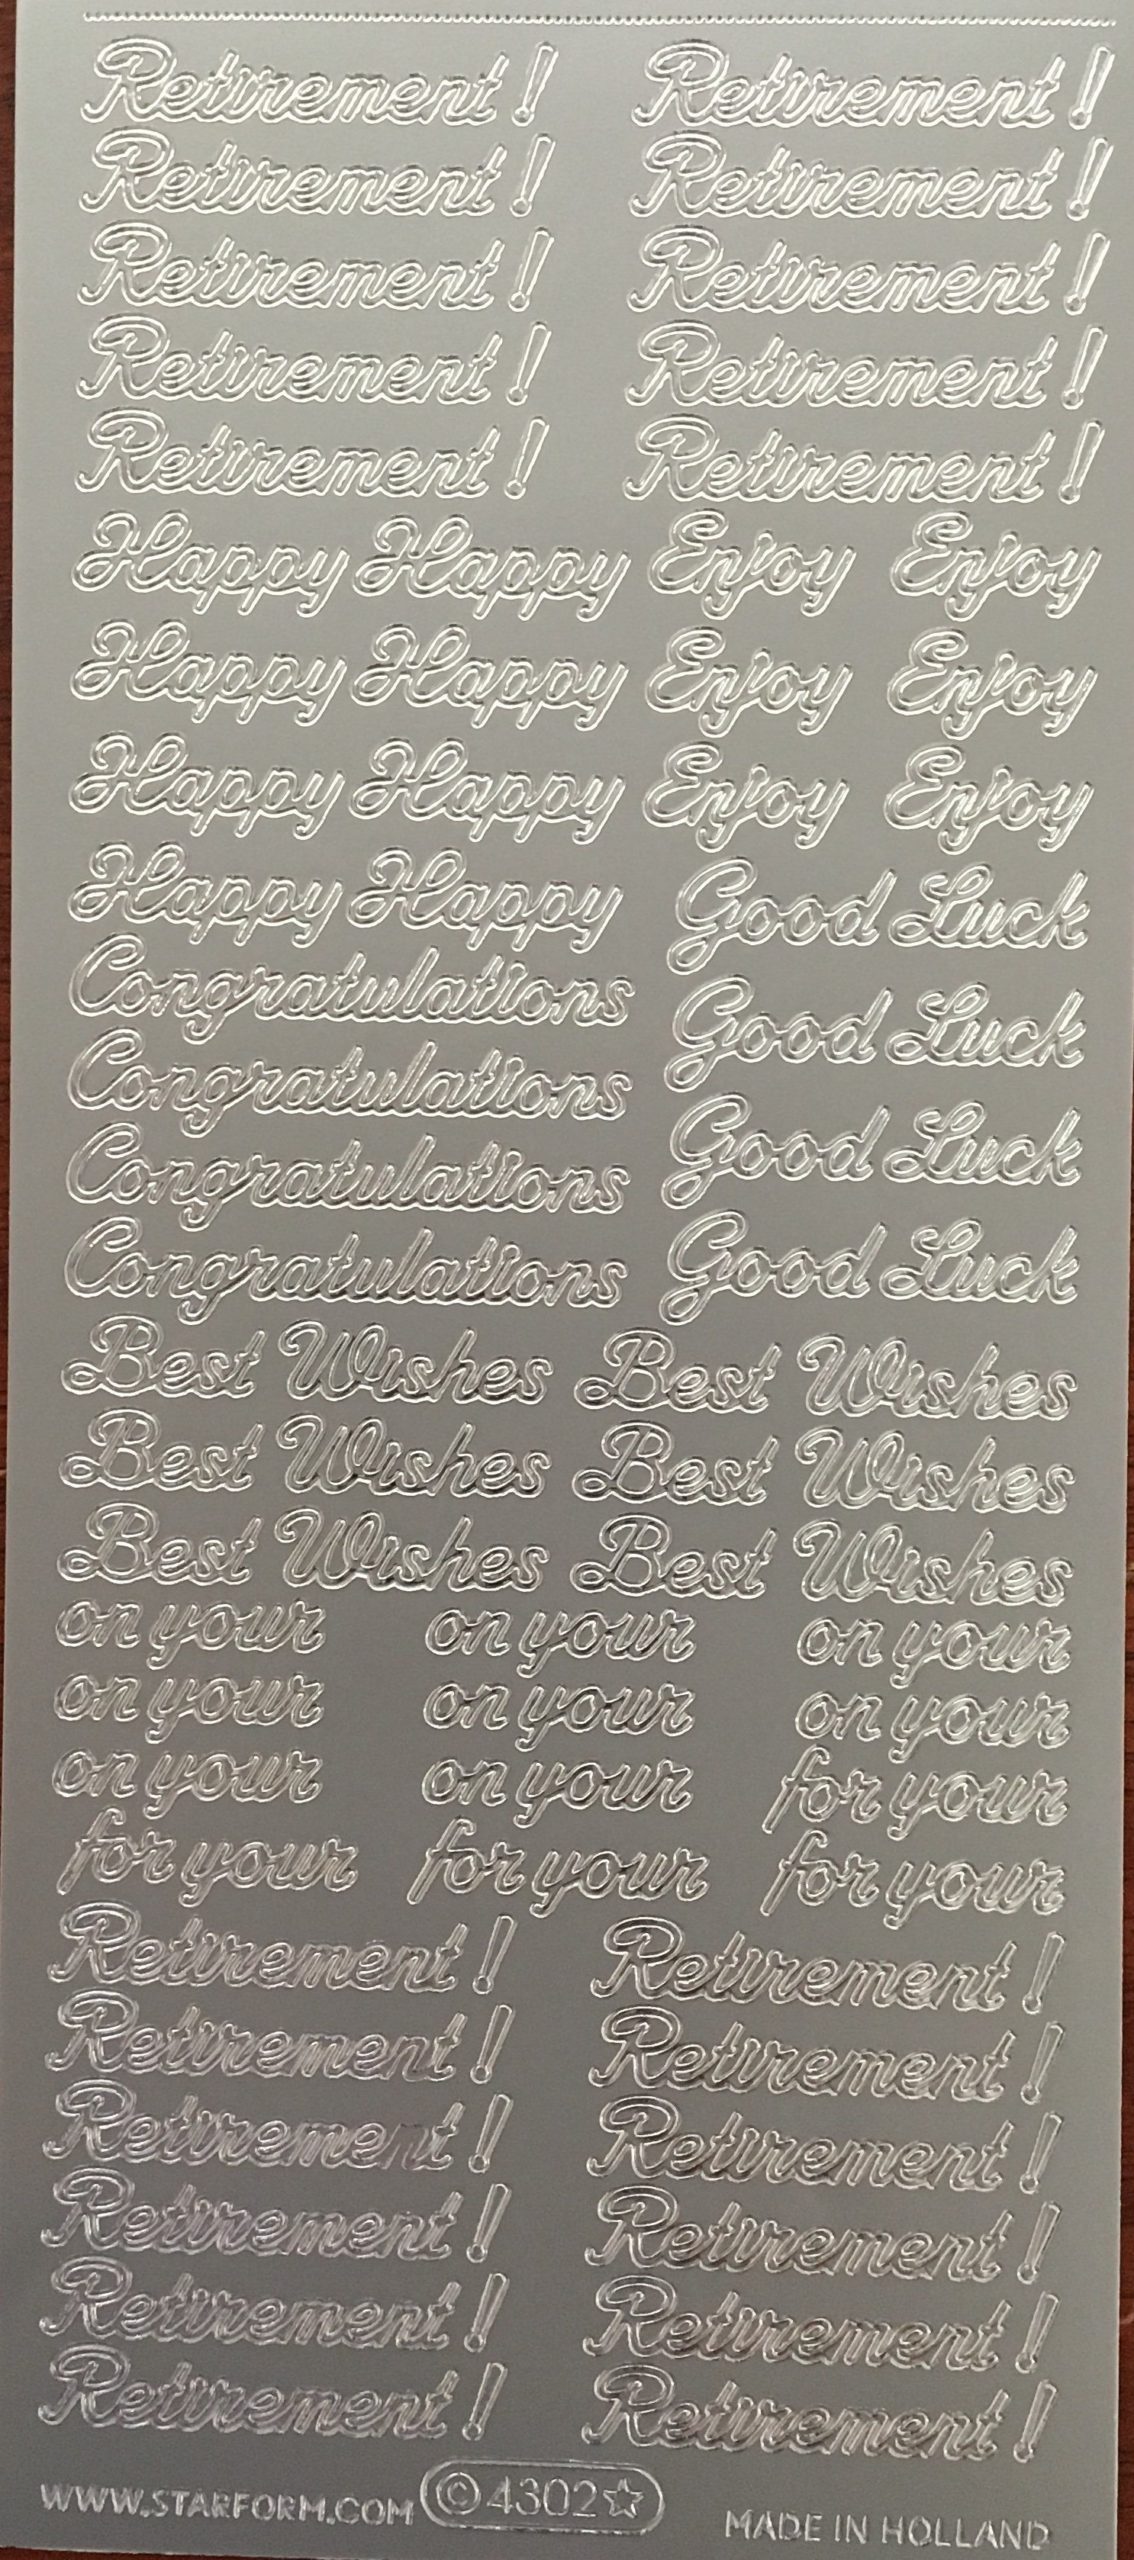 Retirement! Retirement!
Retirement! Retirement!
Retirement! Retirement!
Retirement! Retirement!
Retirement! Retirement!
Happy Happy Enjoy Enjoy
Happy Happy Enjoy Enjoy
Happy Happy Enjoy Enjoy
Happy Happy Good Luck
Congratulations Good Luck
Congratulations Good Luck
Congratulations Good Luck
Congratulations
Best Wishes Best Wishes
Best Wishes Best Wishes
Best Wishes Best Wishes
on your on your on your
on your on your on your
on your on your for your
for your for your for your
Retirement! Retirement!
Retirement! Retirement!
Retirement! Retirement!
Retirement! Retirement!
Retirement! Retirement!
Retirement! Retirement!
WWW.STARFORM.COM © 4302 ☆ MADE IN HOLLAND